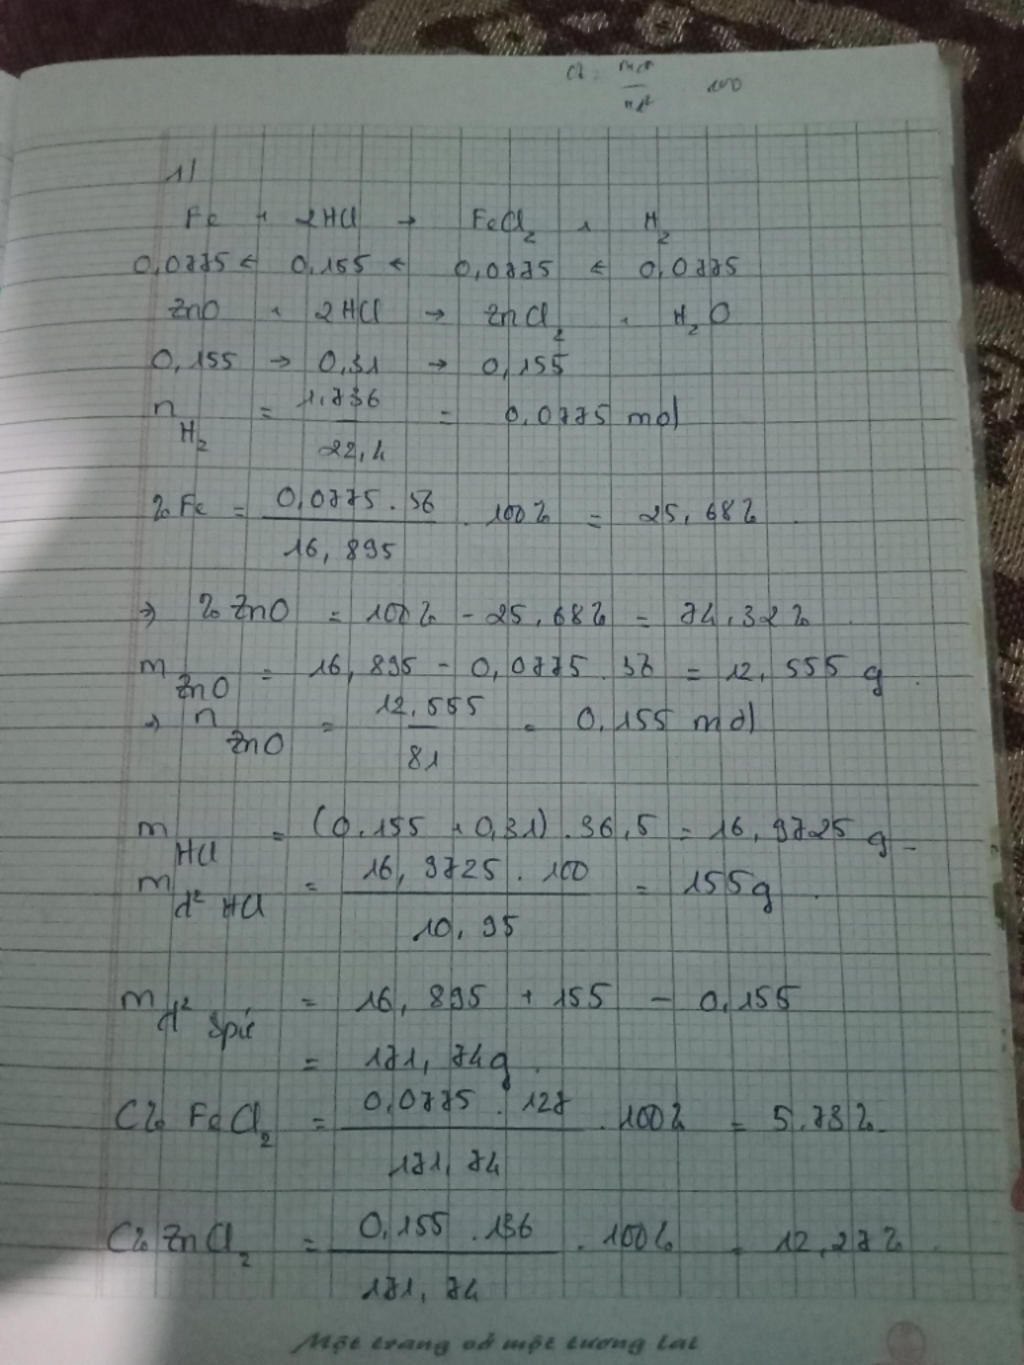 100
1/
Fe + 2HCl → FeCl2 + H2
0,0775 ← 0,155 ← 0,0775 ← 0,0775
ZnO + 2HCl → ZnCl2 + H2O
0,155 → 0,31 → 0,155
nH2 = 1,736 / 22,4 = 0,0775 mol
%Fe = 0,0775 . 56 / 16,895 . 100% = 25,68% .
→ % ZnO = 100% - 25,68% = 74,32% .
mZnO = 16,895 - 0,0775 . 56 = 12,555 g .
→ nZnO = 12,555 / 81 = 0,155 mol
mHCl = (0,155 + 0,31) . 36,5 = 16,9725 g .
md² HCl = 16,9725 . 100 / 10,95 = 155g .
md² spứ = 16,895 + 155 - 0,155
= 171,74g .
C% FeCl2 = 0,0775 . 127 / 171,74 . 100% = 5,73% .
C% ZnCl2 = 0,155 . 136 / 171,74 . 100% = 12,27% .
Một trang vở một tương lai